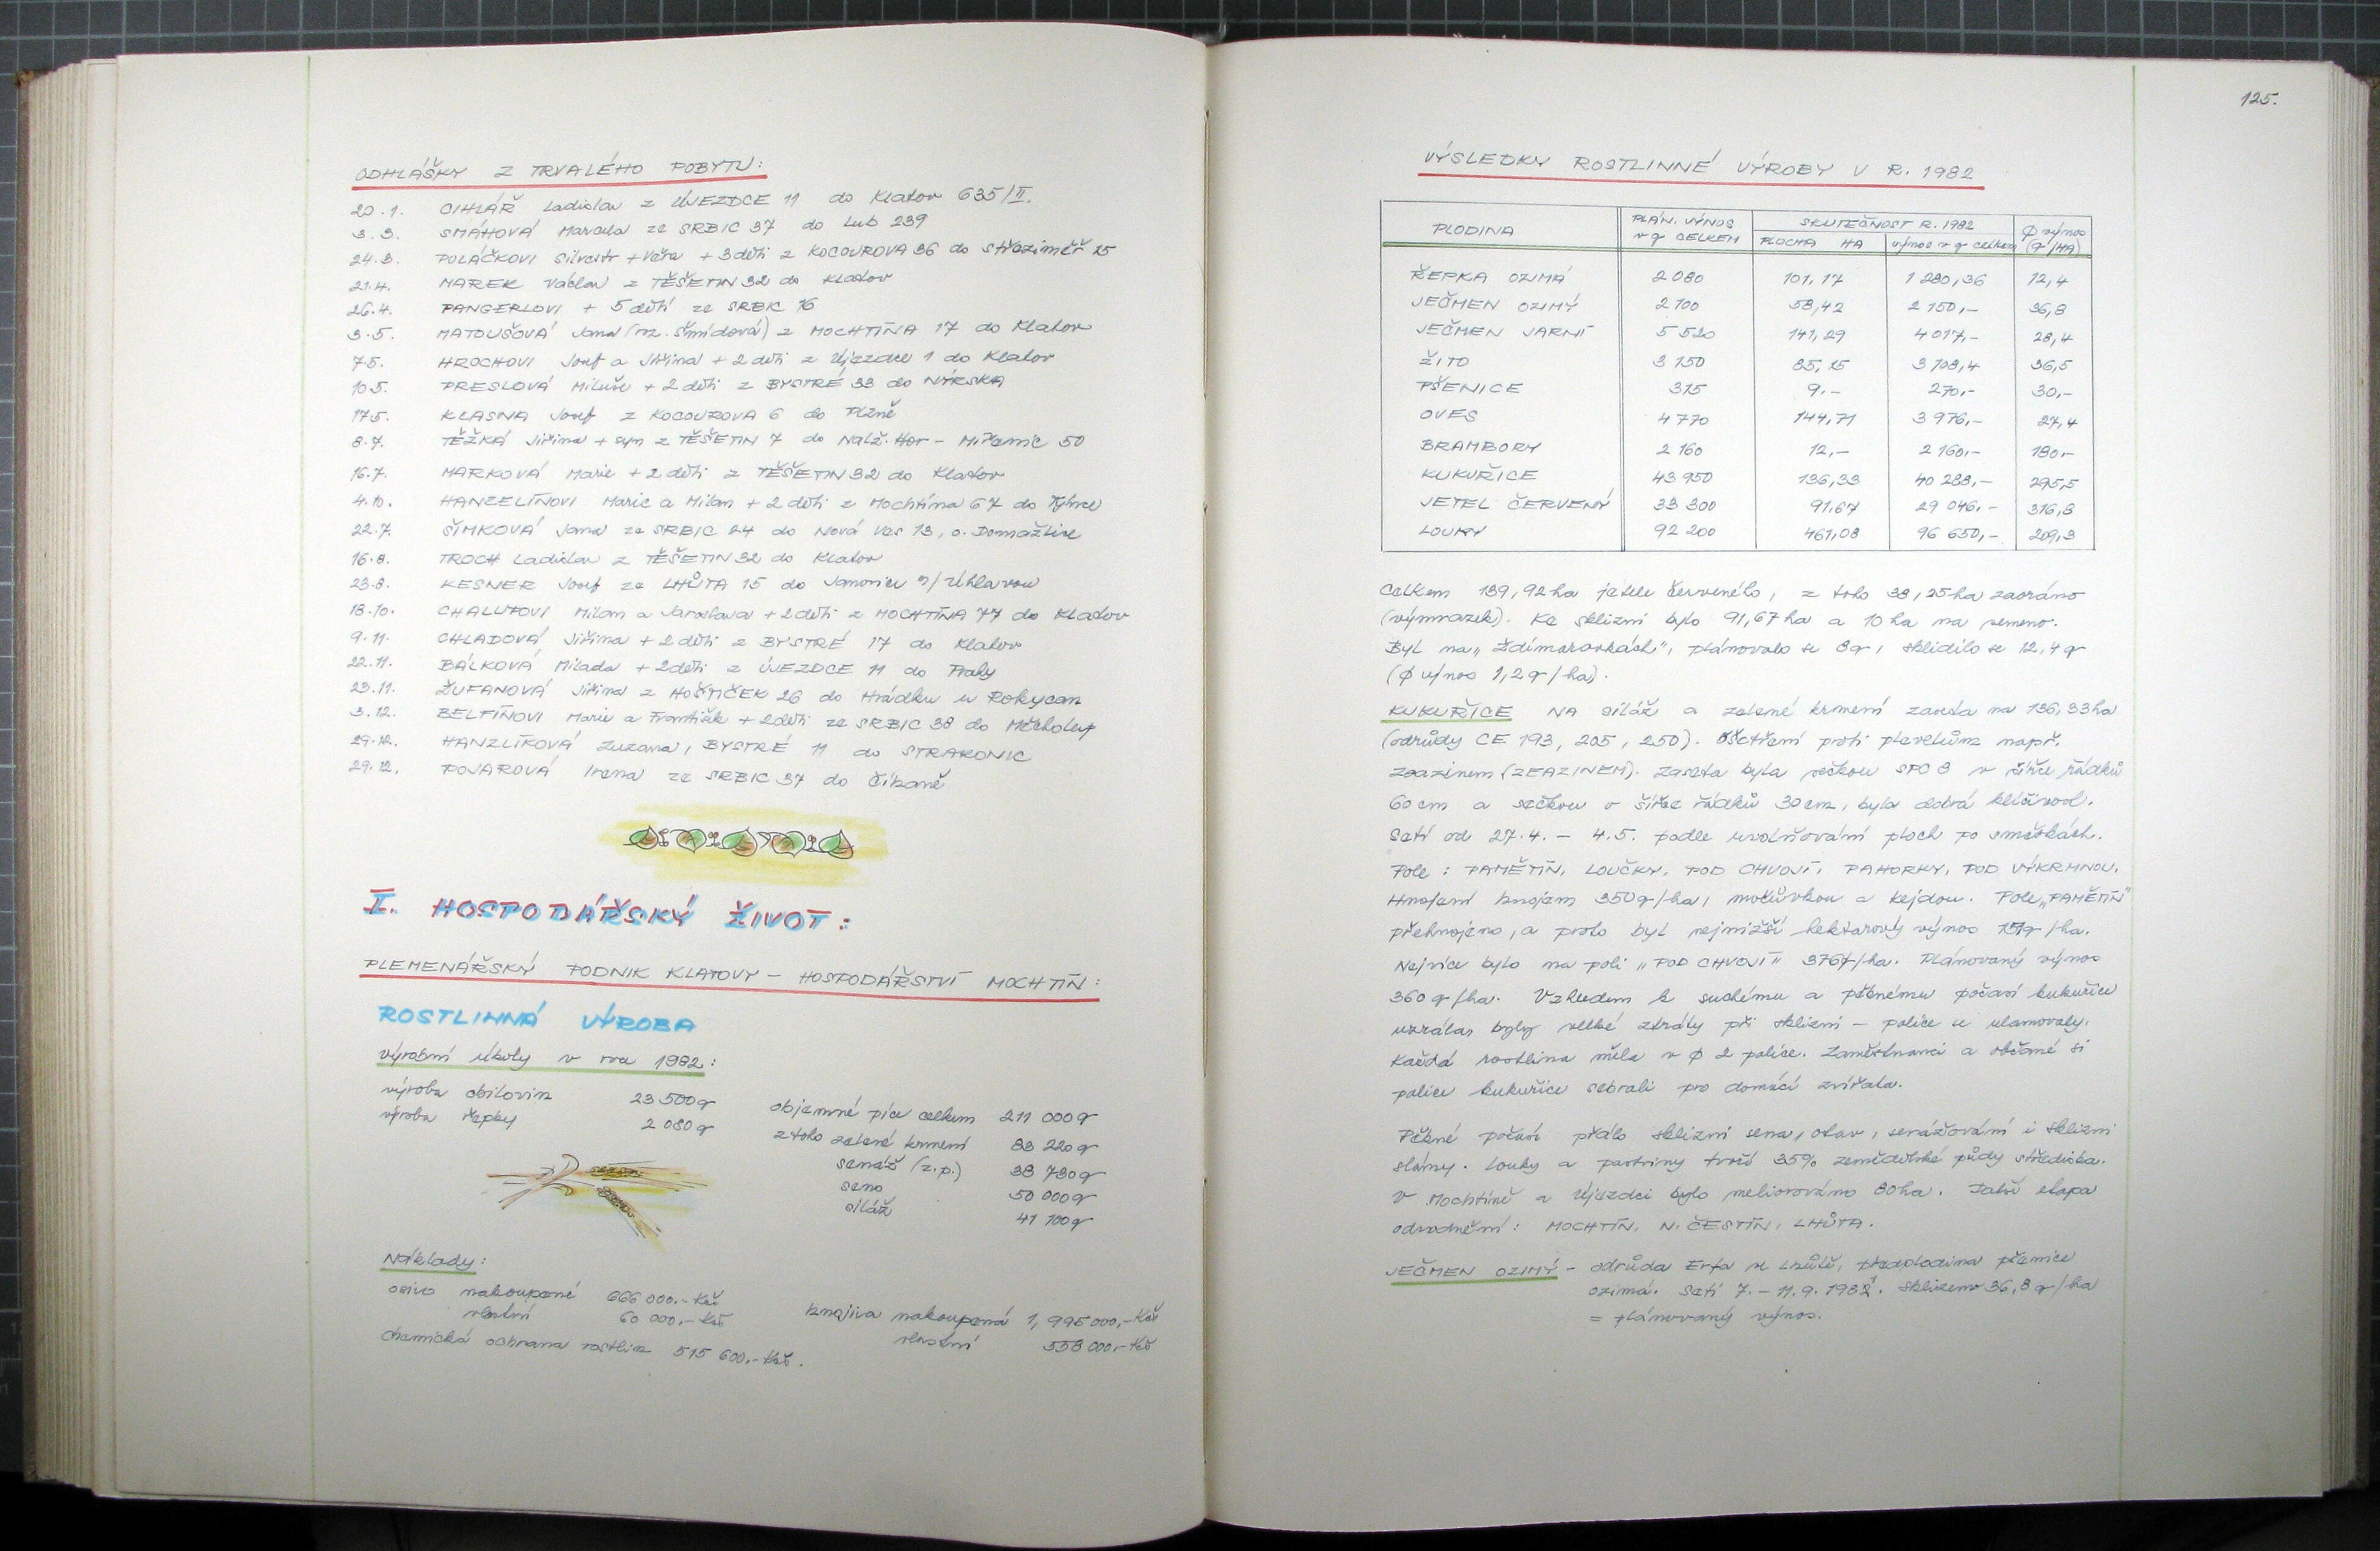 ODHLÁŠKY Z TRVALÉHO POBYTU:
20.1. CIHLÁŘ Ladislav z ÚJEZDCE 11 do Klatov 635/II.
3.3. SMÁHOVÁ Marcela ze SRBIC 37 do Lub 239
24.3. POLÁČKOVI Silvestr + Věra + 3 děti z KOCOUROVA 36 do Střeziměř 25
21.4. MAREK Václav z TĚŠETIN 32 do Klatov
26.4. PANGERLOVI + 5 dětí ze SRBIC 16
3.5. MATOUŠOVÁ Jana (roz. Šmídová) z MOCHTÍNA 17 do Klatov
7.5. HROCHOVI Josef a Jiřina + 2 děti z Újezdce 1 do Klatov
10.5. PRESLOVÁ Miluše + 2 děti z BYSTRÉ 33 do NÝRSKA
17.5. KLASNA Josef z KOCOUROVA 6 do Plzně
8.7. TĚŽKÁ Jiřina + syn z TĚŠETIN 7 do Nalž. Hor - Miřenic 50
16.7. MARKOVÁ Marie + 2 děti z TĚŠETIN 32 do Klatov
4.10. HANZELÍNOVI Marie a Milan + 2 děti z Mochtína 67 do Týnce
22.7. ŠIMKOVÁ Jana ze SRBIC 24 do Nová Ves 13, o. Domažlice
16.8. TROCH Ladislav z TĚŠETIN 32 do Klatov
23.8. KESNER Josef ze LHŮTA 15 do Janovice n/Úhlavou
18.10. CHALUPOVI Milan a Jaroslava + 2 děti z MOCHTÍNA 77 do Klatov
9.11. CHLADOVÁ Jiřina + 2 děti z BYSTRÉ 17 do Klatov
22.11. BÁLKOVÁ Milada + 2 děti z ÚJEZDCE 11 do Prahy
23.11. ŽUFANOVÁ Jiřina z HOŠTIČEK 26 do Hrádku u Rokycan
3.12. BELFÍNOVI Marie a František + 2 děti ze SRBIC 38 do Měcholup
29.12. HANZLÍKOVÁ Zuzana, BYSTRÉ 11 do STRAKONIC
29.12. POJAROVÁ Irena ze SRBIC 37 do Číkaně
I. HOSPODÁŘSKÝ ŽIVOT:
PLEMENÁŘSKÝ PODNIK KLATOVY - HOSPODÁŘSTVÍ MOCHTÍN:
ROSTLINNÁ VÝROBA
výrobní úkoly v roce 1982:
výroba obilovin 23 500 q
výroba řepky 2 080 q
objemné píce celkem 211 000 q
z toho zelené krmení 83 220 q
senáž (z.p.) 38 780 q
seno 50 000 q
siláž 41 100 q
Náklady:
osivo nakoupené 666 000.- Kčs
vlastní 60 000,- Kčs
chemická ochrana rostlin 515 600.- Kčs.
hnojiva nakoupená 1,995 000,- Kčs
vlastní 558 000,- Kčs
125.
VÝSLEDKY ROSTLINNÉ VÝROBY V R. 1982
PLODINA PLÁN. VÝNOS v q CELKEM SKUTEČNOST R. 1982 PLOCHA HA výnos v q celkem Ø výnos (q/HA)
ŘEPKA OZIMÁ 2 080 101,17 1 280,36 12,4
JEČMEN OZIMÝ 2 100 58,42 2 150,- 36,8
JEČMEN JARNÍ 5 520 141,29 4 017,- 28,4
ŽITO 3 150 85,15 3 108,4 36,5
PŠENICE 315 9.- 270,- 30,-
OVES 4 770 144,71 3 976,- 27,4
BRAMBORY 2 160 12,- 2 160,- 180,-
KUKUŘICE 43 950 136,33 40 288,- 295,5
JETEL ČERVENÝ 33 300 91,67 29 046,- 316,8
LOUKY 92 200 461,08 96 650,- 209,3
Celkem 139,92 ha jetele červeného, z toho 38,25 ha zaoráno
(výmrazek). Ke sklizni bylo 91,67 ha a 10 ha na semeno.
Byl na "Ždímarovkách", plánovalo se 8 q, sklidilo se 12,4 q
(Ø výnos 1,2 q/ha).
KUKUŘICE NA siláž a zelené krmení zaseta na 136,33 ha
(odrůdy CE 193, 205, 250). Ošetření proti plevelům např.
zeazinem (ZEAZINEM). Zaseta byla sečkou SPC 8 v šířce řádků
60 cm a sečkou o šířce řádků 30 cm, byla dobrá klíčivost.
Setí od 27.4. - 4.5. podle uvolňování ploch po směskách.
Pole: PAMĚTÍN, LOUČKY, POD CHVOJÍ, PAHORKY, POD VÝKRMNOU.
Hnojení hnojem 350 q/ha, močůvkou a kejdou. Pole "PAMĚTÍN"
přehnojeno, a proto byl nejnižší hektarový výnos 157 q/ha.
Nejvíce bylo na poli "POD CHVOJÍ" 376 q/ha. Plánovaný výnos
360 q/ha. Vzhledem k suchému a pěknému počasí kukuřice
uzrála, byly velké ztráty při sklizni - palice se ulamovaly.
Každá rostlina měla v Ø 2 palice. Zaměstnanci a občané si
palice kukuřice sebrali pro domácí zvířata.
Pěkné počasí přálo sklizni sena, otav, senážování i sklizni
slámy. Louky a pastviny tvoří 35% zemědělské půdy střediska.
V Mochtíně a Újezdci bylo meliorováno 80 ha. Další etapa
odvodnění: MOCHTÍN, N. ČESTÍN, LHŮTA.
JEČMEN OZIMÝ - odrůda Erfa ve Lhůtě, předplodina pšenice
ozimá. Setí 7. - 11. 9. 1981. Sklizeno 36,8 q/ha
= plánovaný výnos.